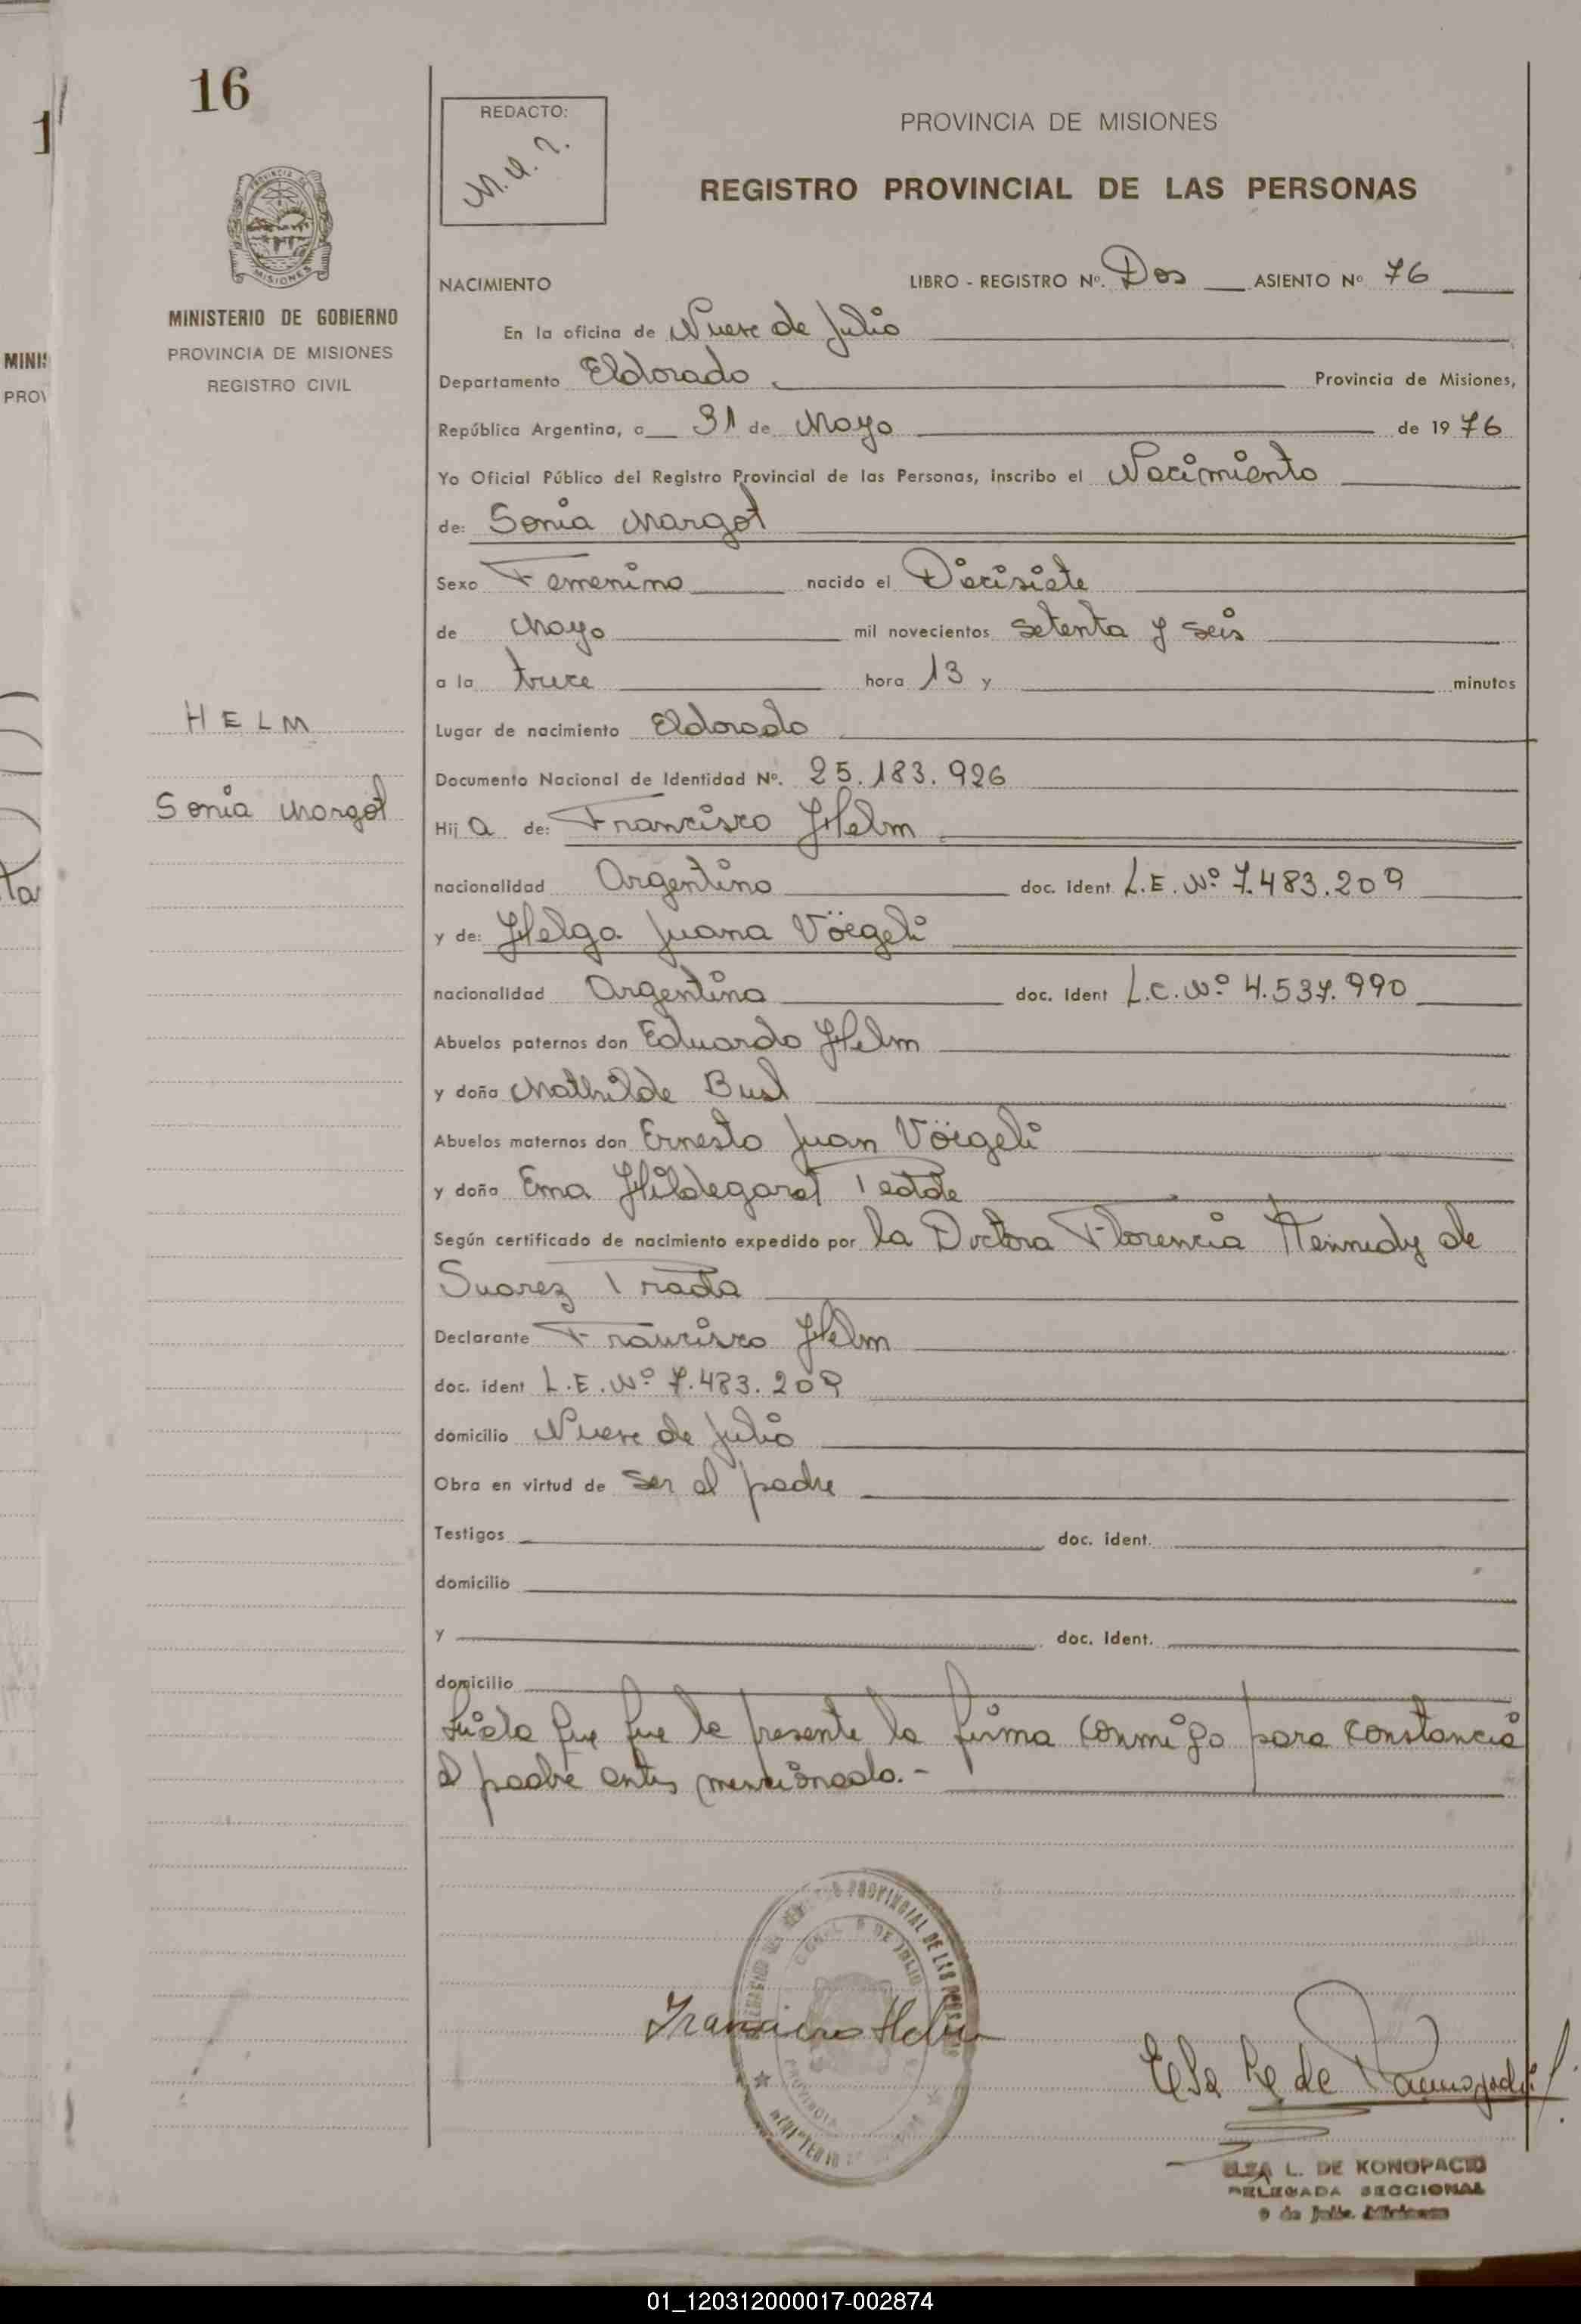 16
REDACTO:
PROVINCIA DE MISIONES
REGISTRO PROVINCIAL DE LAS PERSONAS
MISIONES
MINISTERIO DE GOBIERNO
PROVINCIA DE MISIONES
REGISTRO CIVIL
NACIMIENTO LIBRO - REGISTRO Nº. Dos ASIENTO Nº 76
En la oficina de Nueve de Julio
Departamento Eldorado Provincia de Misiones,
República Argentina, a 31 de Mayo de 1976
Yo Oficial Público del Registro Provincial de las Personas, inscribo el Nacimiento
de: Sonia Margot
Sexo Femenino nacido el Diecisiete
de Mayo mil novecientos setenta y seis
a la trece hora 13 y minutos
HELM
Lugar de nacimiento Eldorado
Documento Nacional de Identidad Nº. 25.183.926
Sonia Margot
Hija de: Francisco Helm
nacionalidad Argentino doc. ident L.E. Nº 7.483.209
y de: Helga Juana Vöegeli
nacionalidad Argentina doc. ident L.C. Nº 4.537.990
Abuelos paternos don Eduardo Helm
y doña Mathilde
Abuelos maternos don Ernesto Juan Vöegeli
y doña Ema Hildegard
Según certificado de nacimiento expedido por la Doctora Florencia Kennedy de
Suarez
Declarante Francisco Helm
doc. ident L.E. Nº 7.483.209
domicilio Nueve de Julio
Obra en virtud de ser el padre
Testigos doc. ident.
domicilio
y doc. ident.
domicilio
Leída que fue la presente la firma conmigo para constancia
el padre antes mencionado.-
Francisco Helm
ELSA L. DE KONOPACKI
DELEGADA SECCIONAL
9 de Julio. Misiones
01_120312000017-002874